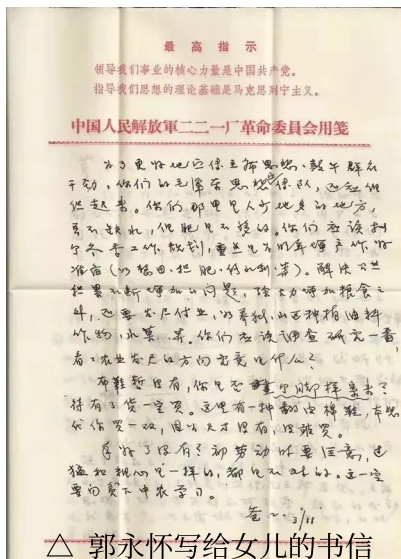 最高指示
领导我们事业的核心力量是中国共产党。
指导我们思想的理论基础是马克思列宁主义。
中国人民解放軍二二一厂革命委員会用笺
为了更好地宣传主席思想、鼓午群众
干劲，你们的毛泽东思想宣传队，
起来。你们那里是人少地多的地方，
是不缺水，但肥是不够的。你们应该抓
了冬季工作规划，重点是为明年增产作好
准备
解决
积累不断增加的问题，除大力增加粮食之
外，还要发展付业，如养猪，以及种植油料
作物，水果，等。你们应该调查研究一番，
看看农业发展的方向究竟是什么？
布鞋暂没有，你是否
待有了货一定买。这里有一种翻皮棉鞋，本想
代你买一双，因为尺寸没有，没敢买。
好了没有？初劳动时要注意，过
猛和粗心是一样的，都是不对的。这一定
要向贫下中农学习。
爸 3/11
△ 郭永怀写给女儿的书信